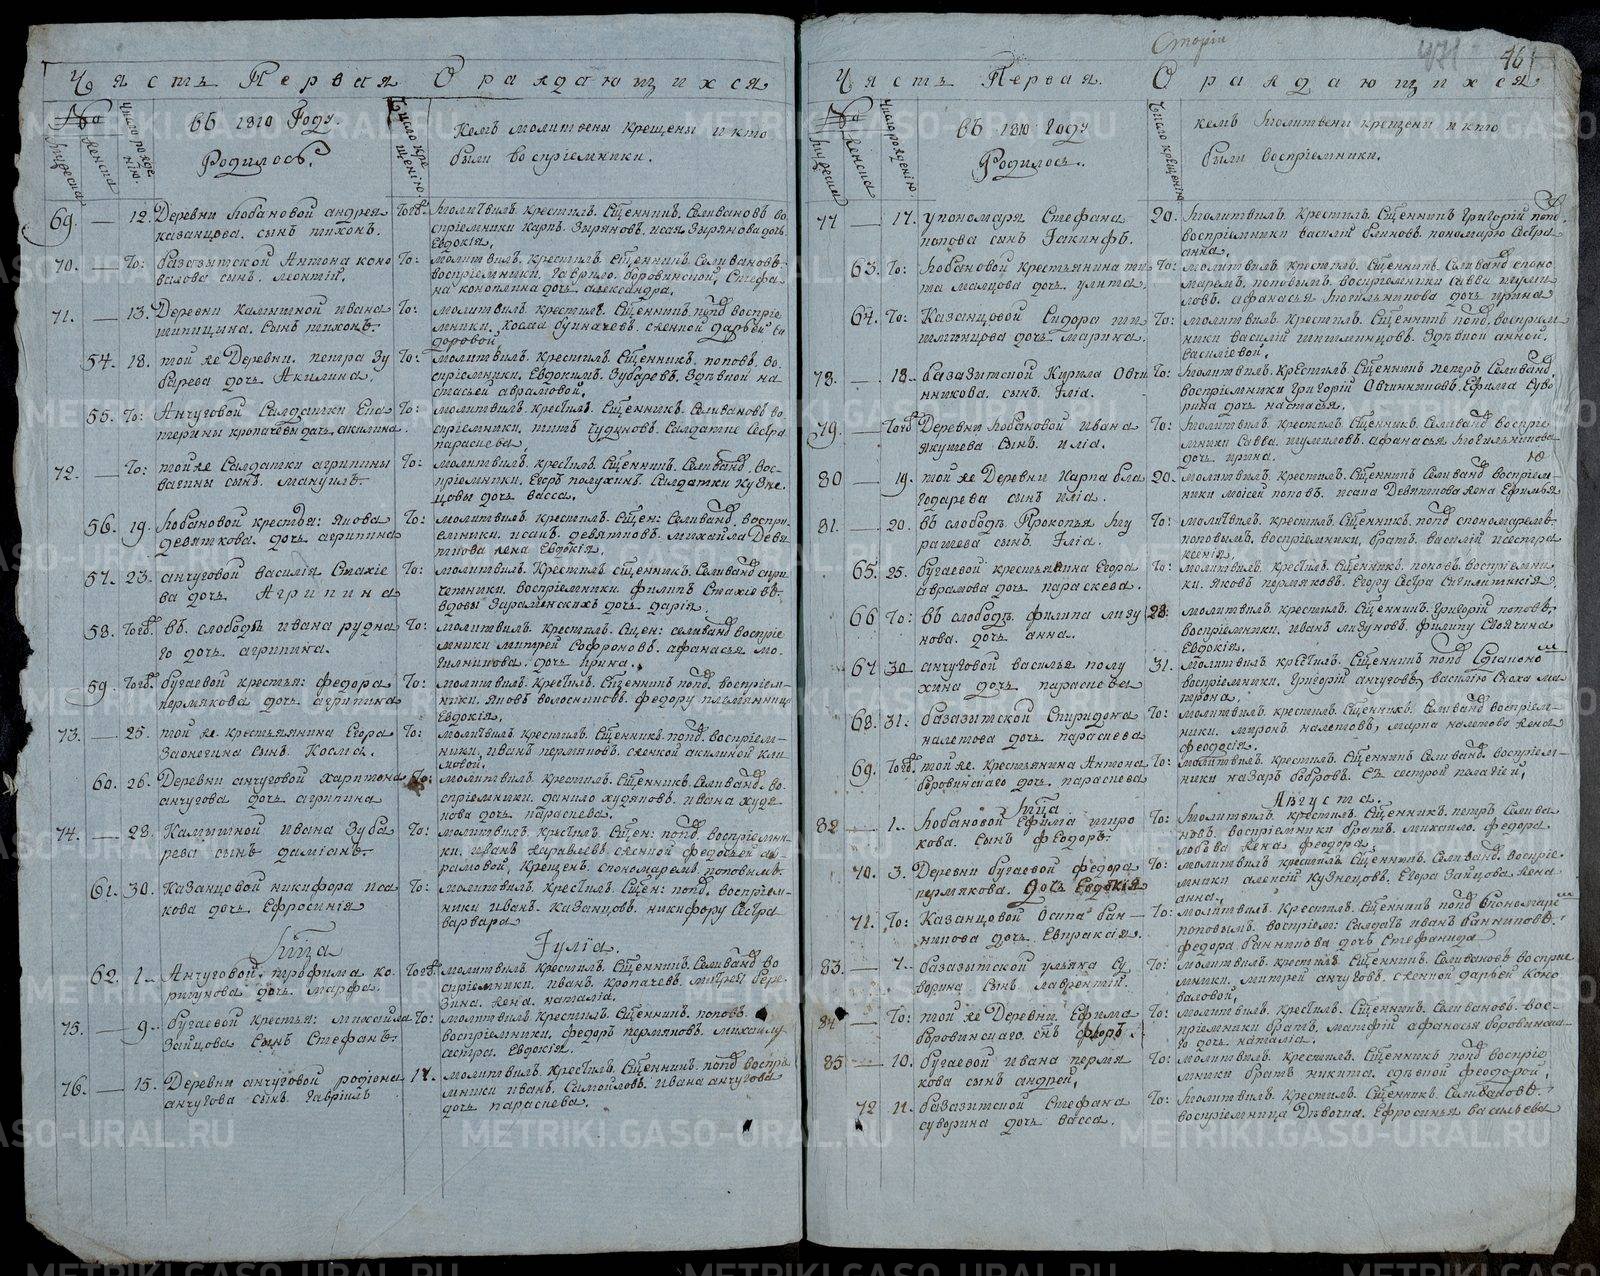 Часть Первая О раждающихся
№
мужеска
женска
число рожде
нію.
въ 1810 Году.
Родилось.
Число кре
щенію.
Кемъ молитвены крещены и кто
были воспріемники.
69. — 12. Деревни Лобановой андрея
казанцова. сынъ тихонъ.
тогожъ. молитвилъ. крестилъ. Сщенникъ. Селивановъ во
спріемники карпъ. Зыряновъ. исая Зырянова дочь
Евдокія.
70. — То: базазитской Антона коно
валова сынъ. леонтій.
То: молитвилъ. крестилъ. Сщенникъ. Селивановъ.
воспріемники. Гаврило. боровинской, Стефа
на коноплина дочь александра.
71. — 13. Деревни Камышной ивана
шипицина. сынъ тихонъ.
То: молитвилъ. крестилъ. Сщенникъ. попов воспріе
мники.
доровой
54. 18. той же Деревни. петра Зу
барева дочь Акилина.
То: молитвилъ. крестилъ. Сщенникъ. поповъ. во
спріемники. Евдокимъ. Зубаревъ. Здевкой на
стасьей аврамовой.
55. То: Анчуговой Салдатки Ека
терины кропачевы дочь. акилина.
То: молитвилъ. крестилъ. Сщенникъ. Селивановъ во
спріемники. титъ чудиновъ. Салдатке Сестра
параскева.
72. — То: той же Салдатки агрипины
вагины сынъ. мануилъ.
То: молитвилъ. крестилъ. Сщенникъ. Селиванов. вос-
пріемники. Егоръ полухинъ. Салдатки Кузне
цовы дочь васса.
56. 19. Лобановой крестья: якова
девяткова. дочь агрипина
То: молитвилъ. крестилъ. Сщен: Селиванов. воспрі
емники. исаия девятковъ. михаила Девя
ткова жена Евдокія.
57. 23. анчуговой василія Стахіе
ва дочь Агрипина
То: молитвилъ. Крестилъ сщенникъ. Селиванов спри
четники. воспріемники. филипъ Стахіевъ.
вдовы Зараменскихъ дочь дарія.
58. тогожъ. въ слободѣ ивана рудна
го дочь агрипина.
То: молитвилъ. крестилъ. Сщен: селиванов. воспріе
мники митрей Софроновъ. афанасья мо
гилникова. дочь ирина.
59. тогожъ. бугаевой крестья: федора
пермякова дочь агрипина
То: молитвилъ. Крестилъ. Сщенникъ попов. воспріем-
ники. яковъ волосниковъ. федору племянница
Евдокія.
73. — 25. той же крестьянина Егора
Заонегина сынъ. Косма.
То: молитвилъ крестилъ. Сщенникъ попов. воспріем-
ники. иванъ пермяковъ. сженкой акилиной кли
мовой.
60. 26. Деревни анчуговой харитона
анчугова дочь агрипина
То: молитвилъ. крестилъ. Сщенникъ. Селиванов. во
спріемники. данило худяковъ. ивана худя
кова дочь. параскева.
74. — 28. Камышной ивана Зуба
рева сынъ даміанъ.
То: молитвилъ. крестилъ. Сщен: попов. воспріемни-
ки. иванъ журавлевъ. сженой федосьей а
рамовой, Крещенъ. спономаремъ. поповымъ.
61. 30. казанцовой никифора иса
кова дочь Ефросинія
То: молитвилъ. крестилъ. Сщен: попов. воспріем-
ники иванъ. казанцовъ. никифору Сестра
варвара
Іюліа.
62. 1.. Анчуговой. трофима ко.
рягунова дочь. марфа.
тогожъ. молитвилъ Крестилъ. Сщенникъ. Селиванов во
спріемники. иванъ. кропачевъ. митрея бере-
зина. жена. наталія.
75. — 9.. бугаевой крестья: михаила
Зайцова Сынъ Стефанъ.
То: молитвилъ крестилъ. Сщенникъ. поповъ.
воспріемники. федоръ пермяковъ. михаилу
сестра. Евдокія.
76. — 15. Деревни анчуговой родіона
анчугова сынъ. гавріилъ
17. молитвилъ. Крестилъ. Сщенникъ. попов воспріе
мники иванъ. Самойловъ. ивана анчугова
дочь параскева.
461
Часть Первая. О раждающихся
№
мужеска
женска
число рожденію.
въ 1810 Году
Родилось.
Число крещенію
кемъ молитвени крещени и кто
были воспріемники.
77 — 17. у пономаря Стефана
попова сынъ Іакинфъ.
20. молитвилъ. Крестилъ. Сщенникъ григорій попов.
воспріемники василій блиновъ. пономарю Сестра
анна.
63. То: Лобановой крестьянина ти
та малцова дочь. улита.
То: молитвилъ. крестилъ. Сщенникъ. Селиванов споно
маремъ. поповымъ. воспріемники савва шуми
ловъ. афанасья могильникова дочь ирина
64. То: Казанцовой Сидора ши
тминцова дочь. марина.
То: молитвилъ. крестилъ. Сщенникъ попов. воспріем
ники василій шитминцовъ. Здевкой анной.
василіевой.
78. — 18.. базазитской Кирила Овчи
нникова. сынъ. Іліа.
То: молитвилъ. Крестилъ. Сщенникъ петръ Селиванов.
воспріемники григорій Овчинниковъ. Ефима Суво
рина дочь настасья.
79. — тогожъ Деревни Лобановой ивана
якушева сынъ. иліа.
То: молитвилъ. крестилъ. Сщенникъ. Селиванов воспріе
мники Савва. шумиловъ. афанасья могильникова
дочь ирина.
80 — 19. той же Деревни Карпа бла
годарева сынъ иліа.
20. молитвилъ. Крестилъ. Сщенникъ Селиванов воспріем-
ники моисей поповъ. исака Девяткова жена Ефимья
81. — 20. въ слободѣ Прокопья му
рашева сынъ. Іліа.
То: молитвилъ. крестилъ. сщенникъ. попов спономаремъ.
поповымъ. воспріемники, братъ. василій исестра
ксенія.
65. 25. бугаевой крестьянина Егора
аврамова дочь параскева.
То: молитвилъ. крестилъ. Сщенникъ. поповъ. воспріемни-
ки. яковъ пермяковъ. Егору Сестра Сиглитикія.
66 То: въ слободѣ. филипа лизу
нова. дочь анна.
28. молитвилъ крестилъ. Сщенникъ. григорій поповъ.
воспріемники. иванъ лизуновъ. филипу Своячина
Евдокія.
67 30. анчуговой василья полу
хина дочь параскева
31. молитвилъ. крестилъ. Сщенникъ попов
воспріемники. григорій анчуговъ, василію Сноха ма
трона.
68. 31. базазитской Спиридона
налетова дочь параскева
То: молитвилъ. крестилъ. Сщенникъ. Селиванов воспріем-
ники. миронъ налетовъ, марка налетова жена
феодосія.
69. тогожъ. той же. крестьянина Антона
боровинскаго дочь. параскева
То: молитвилъ. крестилъ. Сщенникъ Селиванов. воспріем-
ники назаръ бобровъ. съ сестрой пелагіей.
Августа.
82 — 1.. Лобановой Ефима широ
кова. сынъ феодоръ.
То: молитвилъ. крестилъ. Сщенникъ. петръ Селива
новъ. воспріемники братъ. михаило. федора
лобова жена феодора.
70. 3. Деревни бугаевой федора
пермякова. дочь Евдокія
То: молитвилъ крестилъ. Сщенникъ. Селиванов. воспріе-
мники алексій кузнецовъ. Егора Зайцова. жена
анна.
71. То: Казанцовой Осипа бан—
никова дочь. Евпраксія.
То: молитвилъ. крестилъ. Сщенникъ попов спономаре
поповымъ. воспріем: Салдатъ иванъ банниковъ.
федора банникова дочь Стефанида
83. — 7.. базазитской ульяна Су
ворина сынъ лаврентій.
То: молитвилъ. крестилъ Сщенникъ. Селивановъ воспріе
мники. митрей анчуговъ. сженой дарьей коно
валовой.
84 — То: той же Деревни. Ефима
боровинскаго. снъ Флоръ.
То: молитвилъ. крестилъ. Сщенникъ. Селивановъ. вос-
пріемники братъ. матфій афонасья боровинска
го дочь наталія.
85 — 10. бугаевой ивана пермя
кова сынъ андрей.
То: молитвилъ. крестилъ. Сщенникъ попов воспріе
мники братъ никита. сдевкой феодорой.
72 11. базазитской Стефана
суворина дочь васса.
То: молитвилъ. крестилъ. Сщенникъ. Селивановъ.
воспріемница Девочка. Ефросинья васильева
METRIKI.GASO-URAL.RU